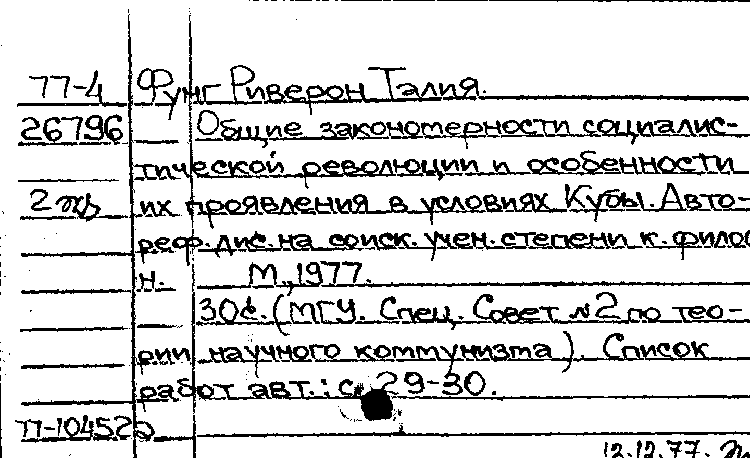 77-4 Фунг Риверон Талия.
26796 Общие закономерности социалис-
тической революции и особенности
2 их проявления в условиях Кубы. Авто-
реф. дис. на соиск. учен. степени к. филос
н. М., 1977.
30с. (МГУ. Спец. Совет №2 по тео-
рии научного коммунизма). Список
работ авт.: с. 29-30.
77-104525
12.12.77.